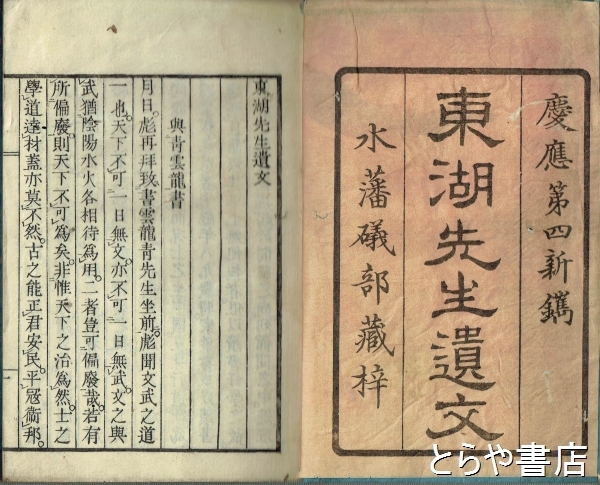 慶應第四新鐫
東湖先生遺文
水藩礒部藏梓
東湖先生遺文
與青雲龍書
月日。彪再拜致書雲龍青先生坐前。彪聞文武之道
一也。天下不可一日無文。亦不可一日無武。文之與
武。猶陰陽水火各相待爲用。二者豈可偏廢哉。若有
所偏廢。則天下不可爲矣。非惟天下之治爲然。士之
學道達材。蓋亦莫不然。古之能正君安民。平冦衞邦。
一
とらや書店